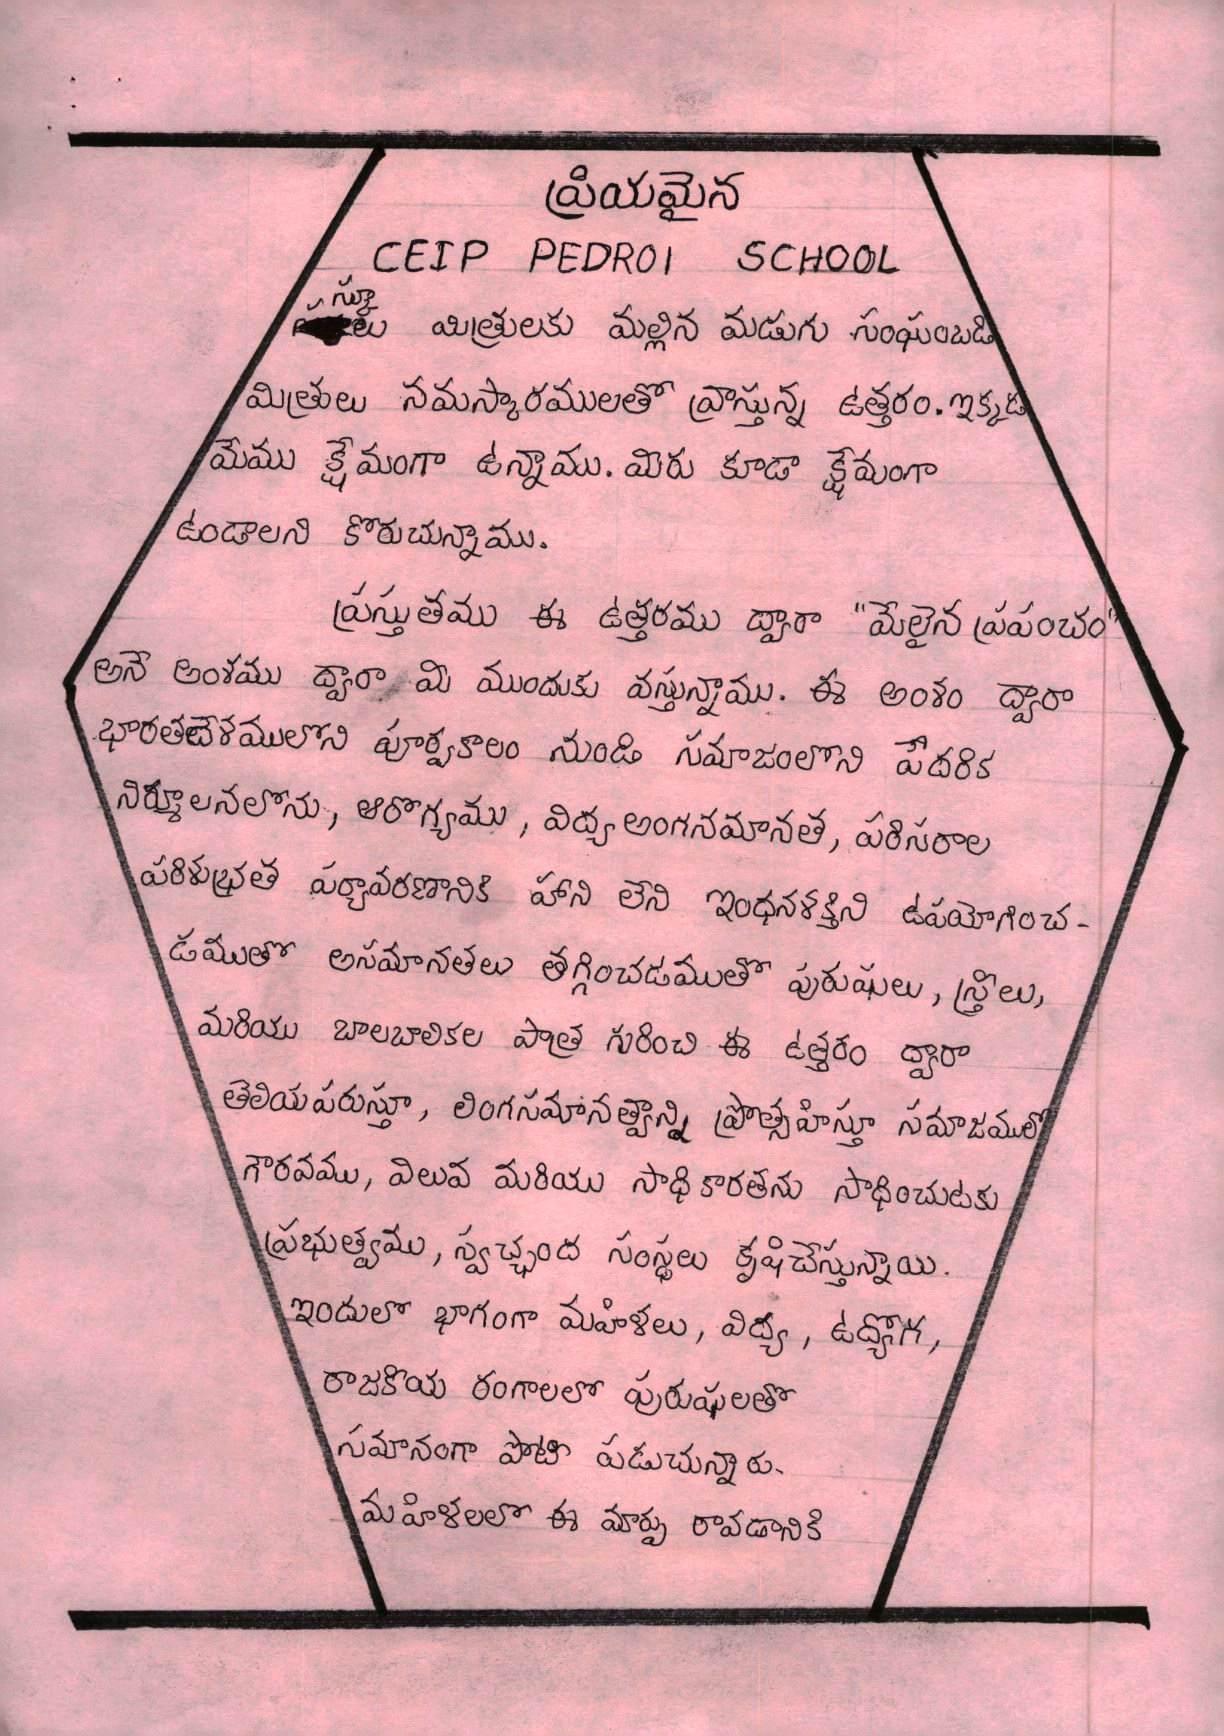 ప్రియమైన
CEIP PEDROI SCHOOL
స్కూలు మిత్రులకు మల్లిన మడుగు సంఘంబడి
మిత్రులు నమస్కారములతో వ్రాస్తున్న ఉత్తరం. ఇక్కడ
మేము క్షేమంగా ఉన్నాము. మీరు కూడా క్షేమంగా
ఉండాలని కొరుచున్నాము.
ప్రస్తుతము ఈ ఉత్తరము ద్వారా "మేలైన ప్రపంచం"
అనే అంశము ద్వారా మీ ముందుకు వస్తున్నాము. ఈ అంశం ద్వారా
భారతదేశములోని పూర్వకాలం నుండి సమాజంలోని పేదరిక
నిర్మూలనలోను, ఆరొగ్యము, విద్య అంగనమానత, పరిసరాల
పరిశుభ్రత పర్యావరణానికి హాని లేని ఇంధనశక్తిని ఉపయోగించ-
డముతో అసమానతలు తగ్గించడముతో పురుషులు, స్త్రీలు,
మరియు బాలబాలికల పాత్ర గురించి ఈ ఉత్తరం ద్వారా
తెలియపరుస్తూ, లింగసమానత్వాన్ని ప్రొత్సహిస్తూ సమాజములో
గౌరవము, విలువ మరియు సాధికారతను సాధించుటకు
ప్రభుత్వము, స్వచ్ఛంద సంస్థలు కృషిచేస్తున్నాయి.
ఇందులో భాగంగా మహిళలు, విద్య, ఉద్యోగ,
రాజకీయ రంగాలలో పురుషులతో
సమానంగా పోటీ పడుచున్నారు.
మహిళలలో ఈ మార్పు రావడానికి